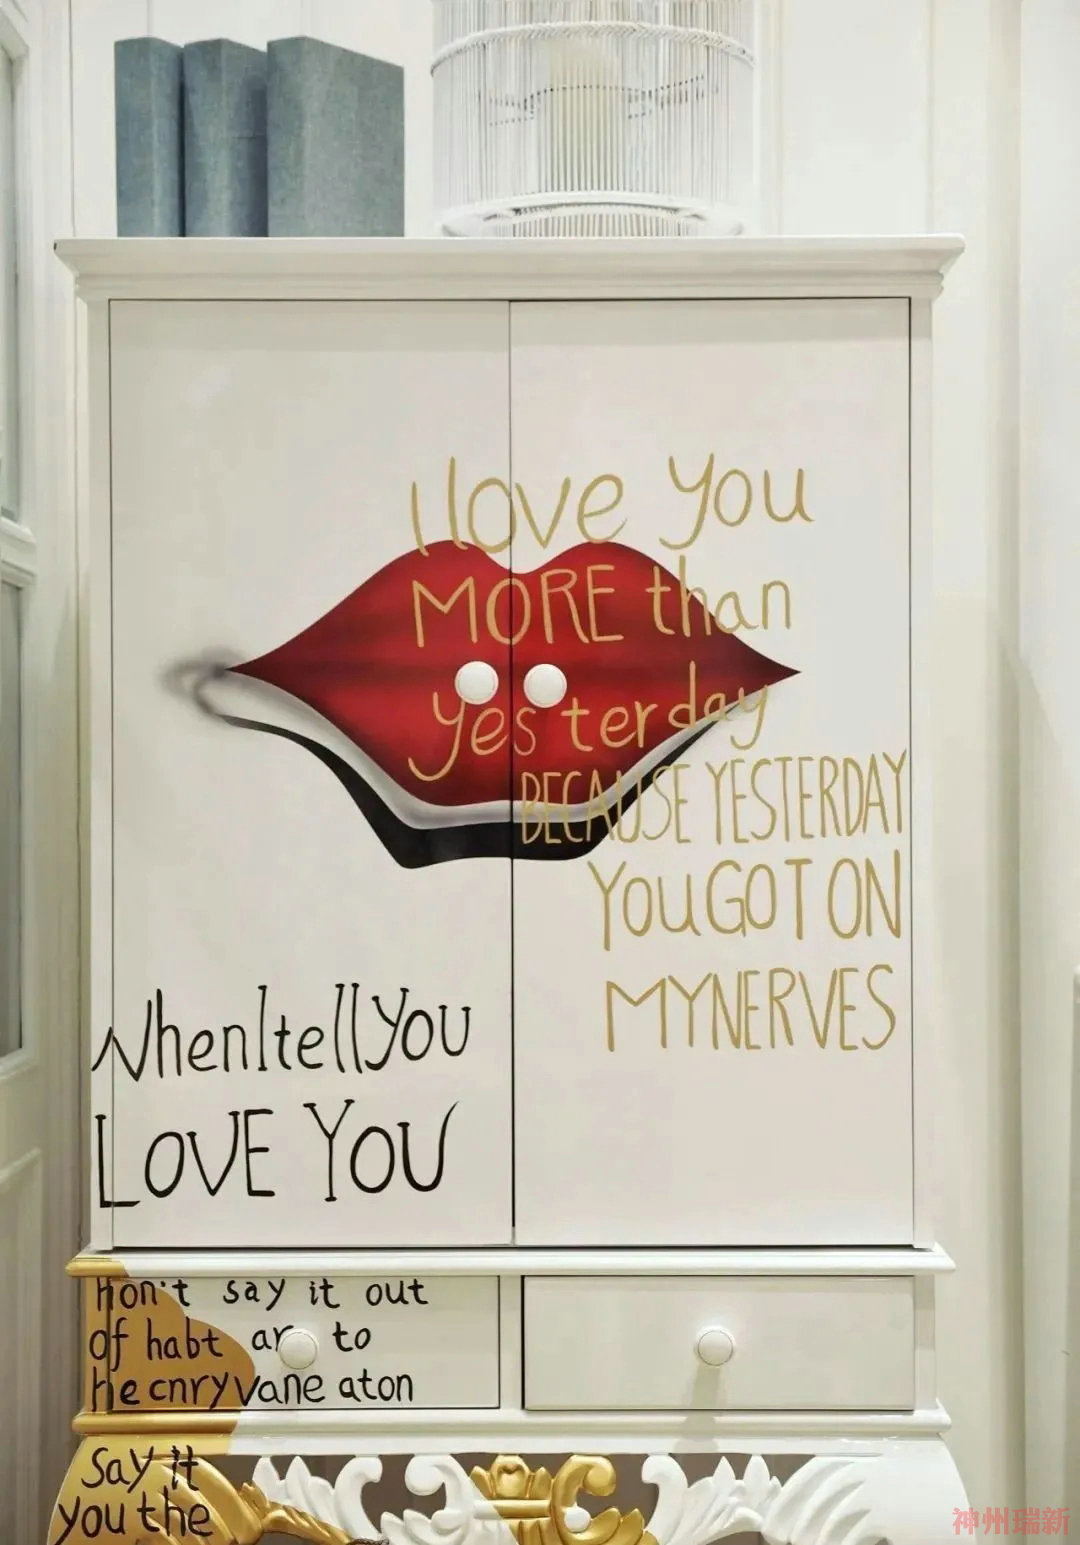 I love you
MORE than
yesterday
BECAUSE YESTERDAY
YOU GOT ON
MY NERVES
When I tell you
LOVE YOU
Hon't say it out
of habt ar to
He cnryvane aton
Say it
you the
神州瑞新